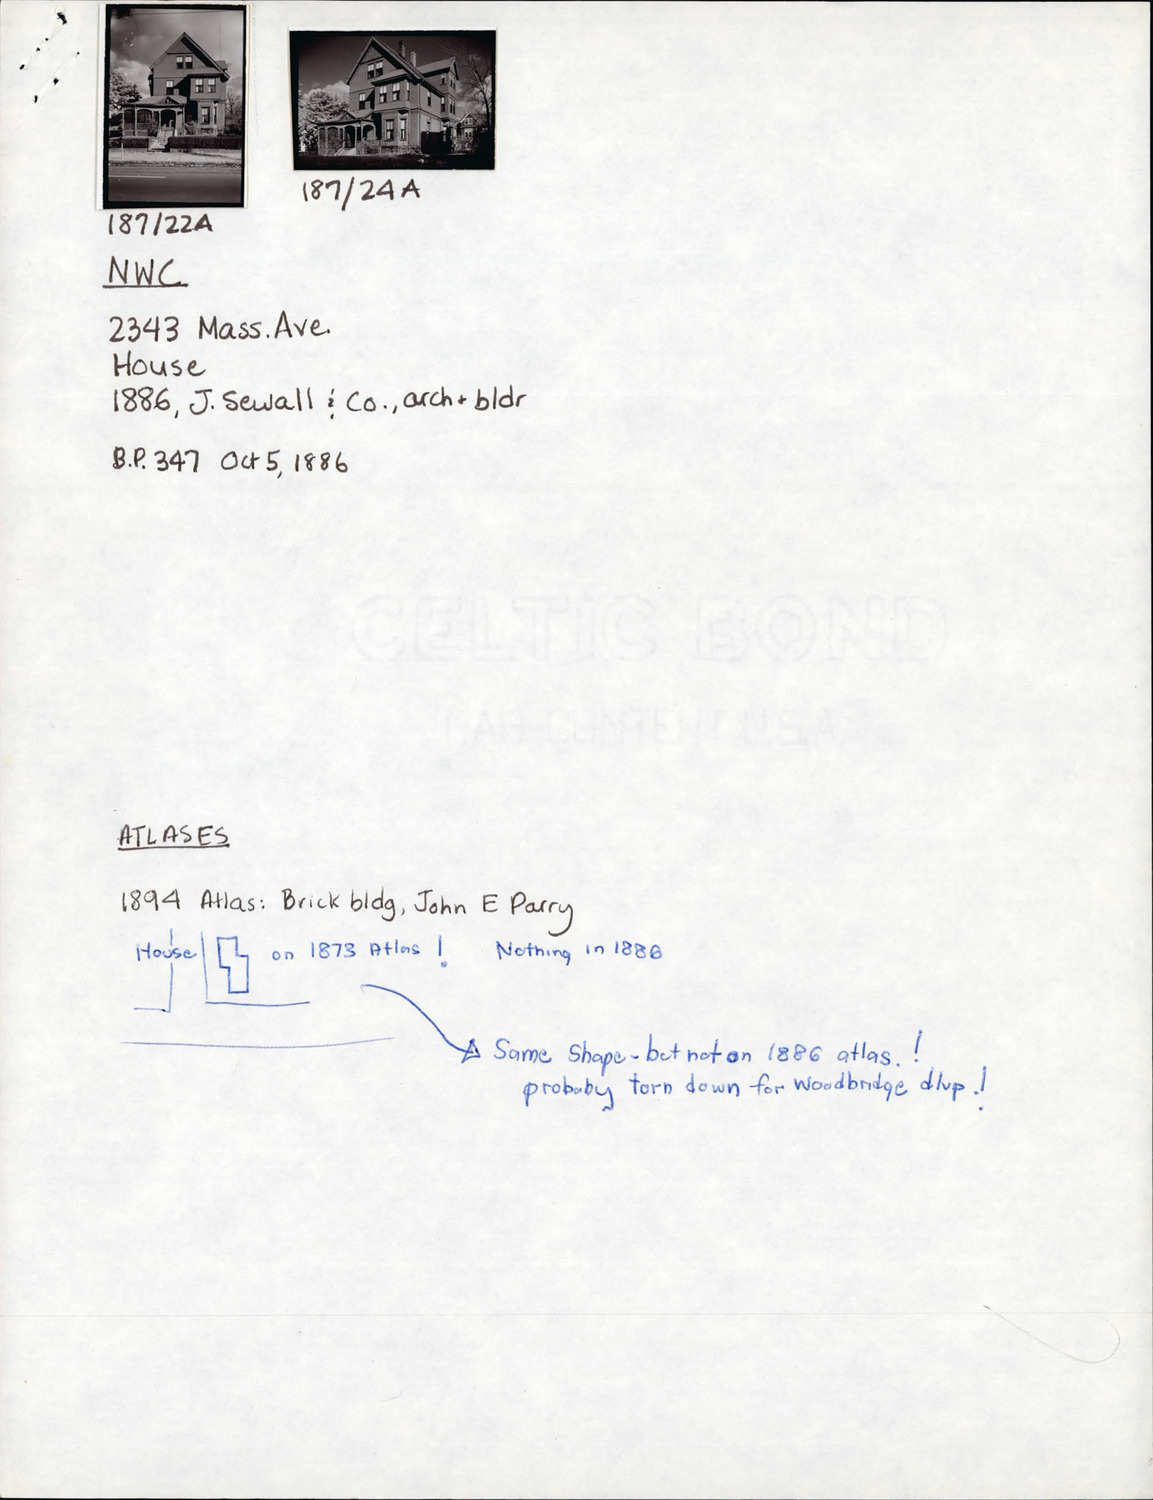 187/22A
187/24A
NWC
2343 Mass. Ave.
House
1886, J. Sewall & Co., arch + bldr
B.P. 347 Oct 5, 1886
CELTIC BOND
U.S.A
ATLASES
1894 Atlas: Brick bldg, John E Parry
House on 1873 Atlas! Nothing in 1886
Same shape - but not on 1886 atlas.!
probaby torn down for Woodbridge dlvp.!